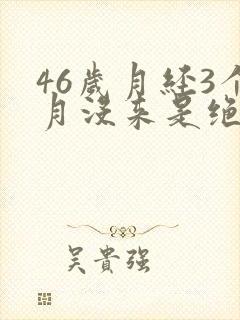 46歲月経3个
月没来是绝
吴貴强